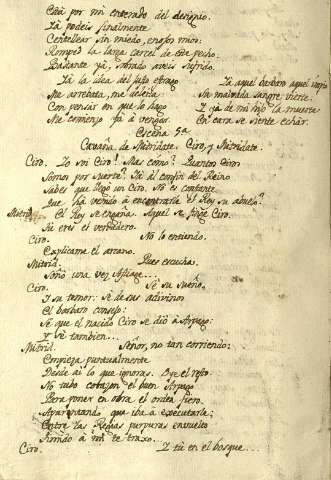 Está por mi enterado del designio.
Ya podeis finalmente
Centellear sin miedo, enojos mios:
Romped la larga carcel de este pecho.
Bastante ya, sobrado aveis sufrido.
Ya la idea del justo estrago
Me arrebata, me deleita
Con pensar en que lo hago
Me comienzo ya á vengar.
Ya aquel barbaro aquel impio
Su malvada sangre vierte:
Y ya de mi hijo la muerte
En cara se siente echar.
Escena 5ª
Cavaña de Mitridate. Ciro, y Mitridate.
Ciro. Yo soi Ciro? Mas como? Quantos Ciros
Somos por suerte? Ya al confin del Reino
Sabes que llegó un Ciro. No es constante
Que ha venido á encontrarle el Rey su abuelo?
Mitrid. El Rey se engaña. Aquel se finge Ciro.
Tu eres el verdadero.
Ciro. No lo entiendo.
Explicame el arcano.
Mitrid. Pues escucha.
Soñó una vez Astiage...
Ciro. Sé su sueño,
Y su temor: Sé de sus adivinos
El barbaro consejo:
Sé que el nacido Ciro se dió á Arpago:
Y sé tambien...
Mitrid. Señor, no tan corriendo:
Empieza puntualmente
Desde ai lo que ignoras. Oye el resto.
No tubo corazon el buen Arpago
Para poner en obra el orden fiero.
Aparentando que iba á executarla;
Entre las Regias purpuras envuelto
Vinido á mi te traxo.
Ciro. Y tú en el bosque...